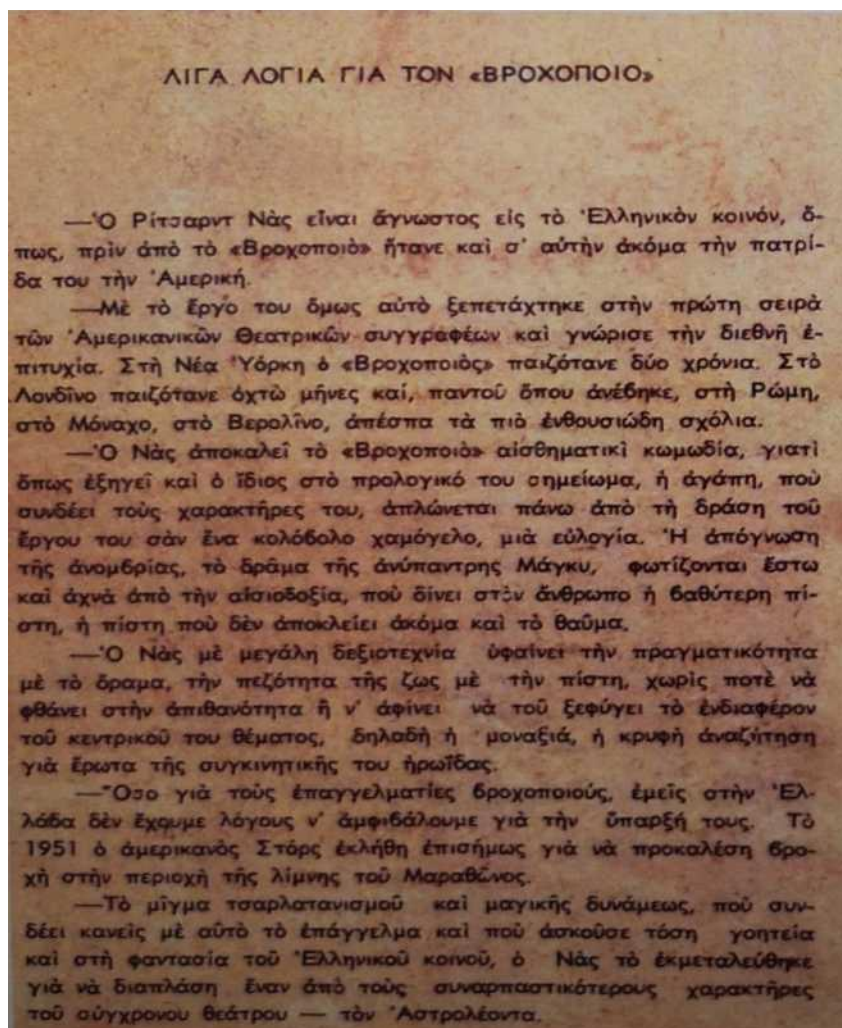 ΛΙΓΑ ΛΟΓΙΑ ΓΙΑ ΤΟΝ «ΒΡΟΧΟΠΟΙΟ»
—Ὁ Ρίτσαρντ Νὰς εἶναι ἄγνωστος εἰς τὸ Ἑλληνικὸν κοινόν, ὅ-
πως, πρὶν ἀπὸ τὸ «Βροχοποιὸ» ἤτανε καὶ σ' αὐτὴν ἀκόμα τὴν πατρί-
δα του τὴν Ἀμερική.
—Μὲ τὸ ἔργο του ὅμως αὐτὸ ξεπετάχτηκε στὴν πρώτη σειρὰ
τῶν Ἀμερικανικῶν Θεατρικῶν συγγραφέων καὶ γνώρισε τὴν διεθνῆ ἐ-
πιτυχία. Στὴ Νέα Ὑόρκη ὁ «Βροχοποιὸς» παιζότανε δύο χρόνια. Στὸ
Λονδῖνο παιζότανε ὀχτὼ μῆνες καί, παντοῦ ὅπου ἀνέβηκε, στὴ Ρώμη,
στὸ Μόναχο, στὸ Βερολῖνο, ἀπέσπα τὰ πιὸ ἐνθουσιώδη σχόλια.
—Ὁ Νὰς ἀποκαλεῖ τὸ «Βροχοποιὸ» αἰσθηματικὶ κωμωδία, γιατὶ
ὅπως ἐξηγεῖ καὶ ὁ ἴδιος στὸ προλογικό του σημείωμα, ἡ ἀγάπη, ποὺ
συνδέει τοὺς χαρακτῆρες του, ἁπλώνεται πάνω ἀπὸ τὴ δράση τοῦ
ἔργου του σὰν ἕνα κολόβολο χαμόγελο, μιὰ εὐλογία. Ἡ ἀπόγνωση
τῆς ἀνομβρίας, τὸ δρᾶμα τῆς ἀνύπαντρης Μάγκυ, φωτίζονται ἔστω
καὶ ἀχνὰ ἀπὸ τὴν αἰσιοδοξία, ποὺ δίνει στὸν ἄνθρωπο ἡ βαθύτερη πί-
στη, ἡ πίστη ποὺ δὲν ἀποκλείει ἀκόμα καὶ τὸ θαῦμα.
—Ὁ Νὰς μὲ μεγάλη δεξιοτεχνία ὑφαίνει τὴν πραγματικότητα
μὲ τὸ δραμα, τὴν πεζότητα τῆς ζως μὲ τὴν πίστη, χωρὶς ποτὲ νὰ
φθάνει στὴν ἀπιθανότητα ἢ ν' ἀφίνει νὰ τοῦ ξεφύγει τὸ ἐνδιαφέρον
τοῦ κεντρικοῦ του θέματος, δηλαδὴ ἡ μοναξιά, ἡ κρυφὴ ἀναζήτηση
γιὰ ἔρωτα τῆς συγκινητικῆς του ἡρωΐδας.
—Ὅσο γιὰ τοὺς ἐπαγγελματίες βροχοποιούς, ἐμεῖς στὴν Ἑλ-
λάδα δὲν ἔχουμε λόγους ν' ἀμφιβάλουμε γιὰ τὴν ὕπαρξή τους. Τὸ
1951 ὁ ἀμερικανὸς Στόρς ἐκλήθη ἐπισήμως γιὰ νὰ προκαλέση βρο-
χὴ στὴν περιοχὴ τῆς λίμνης τοῦ Μαραθῶνος.
—Τὸ μῖγμα τσαρλατανισμοῦ καὶ μαγικῆς δυνάμεως, ποὺ συν-
δέει κανεὶς μὲ αὐτὸ τὸ ἐπάγγελμα καὶ ποὺ ἀσκοῦσε τόση γοητεία
καὶ στὴ φαντασία τοῦ Ἑλληνικοῦ κοινοῦ, ὁ Νὰς τὸ ἐκμεταλεύθηκε
γιὰ νὰ διαπλάση ἕναν ἀπὸ τοὺς συναρπαστικότερους χαρακτῆρες
τοῦ σύγχρονου θεάτρου — τὸν Ἀστρολέοντα.